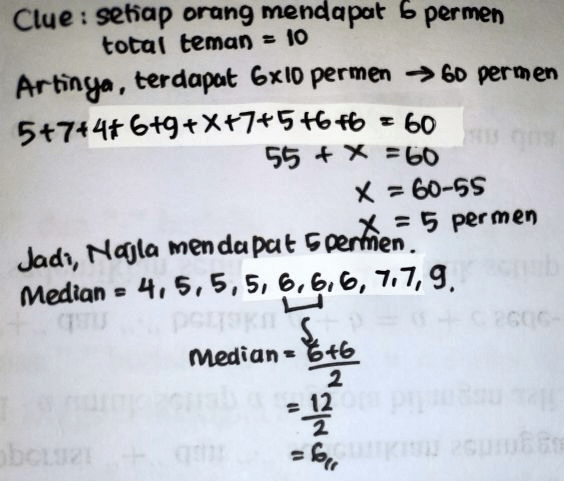 Clue : setiap orang mendapat 6 permen
total teman = 10
Artinya, terdapat 6x10 permen → 60 permen
5+7+4+6+9+x+7+5+6+6 = 60
55 + x = 60
x = 60-55
x = 5 permen
Jadi, Najla mendapat 5 permen.
Median = 4, 5, 5, 5, 6, 6, 6, 7, 7, 9.
Median = 6+6
2
= 12
2
= 6,,